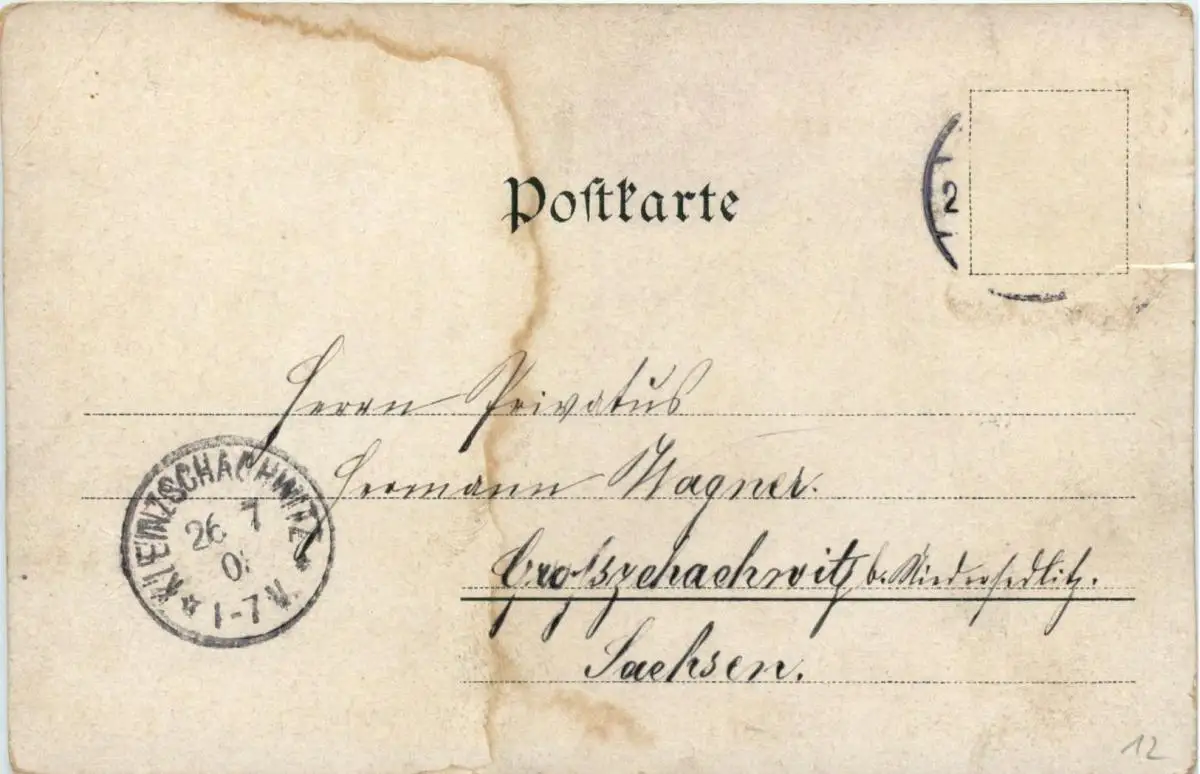 Postkarte
2
Herrn Privatus
Hermann Wagner.
Großzschachwitz b. Niedersedlitz.
Sachsen.
KLEINZSCHACHWITZ
26 7
1-7 V.
12